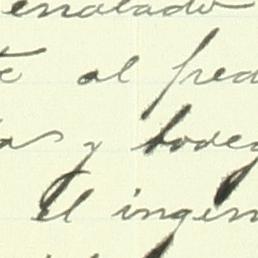 enalado
te al pred
as y bodeg
El ingen